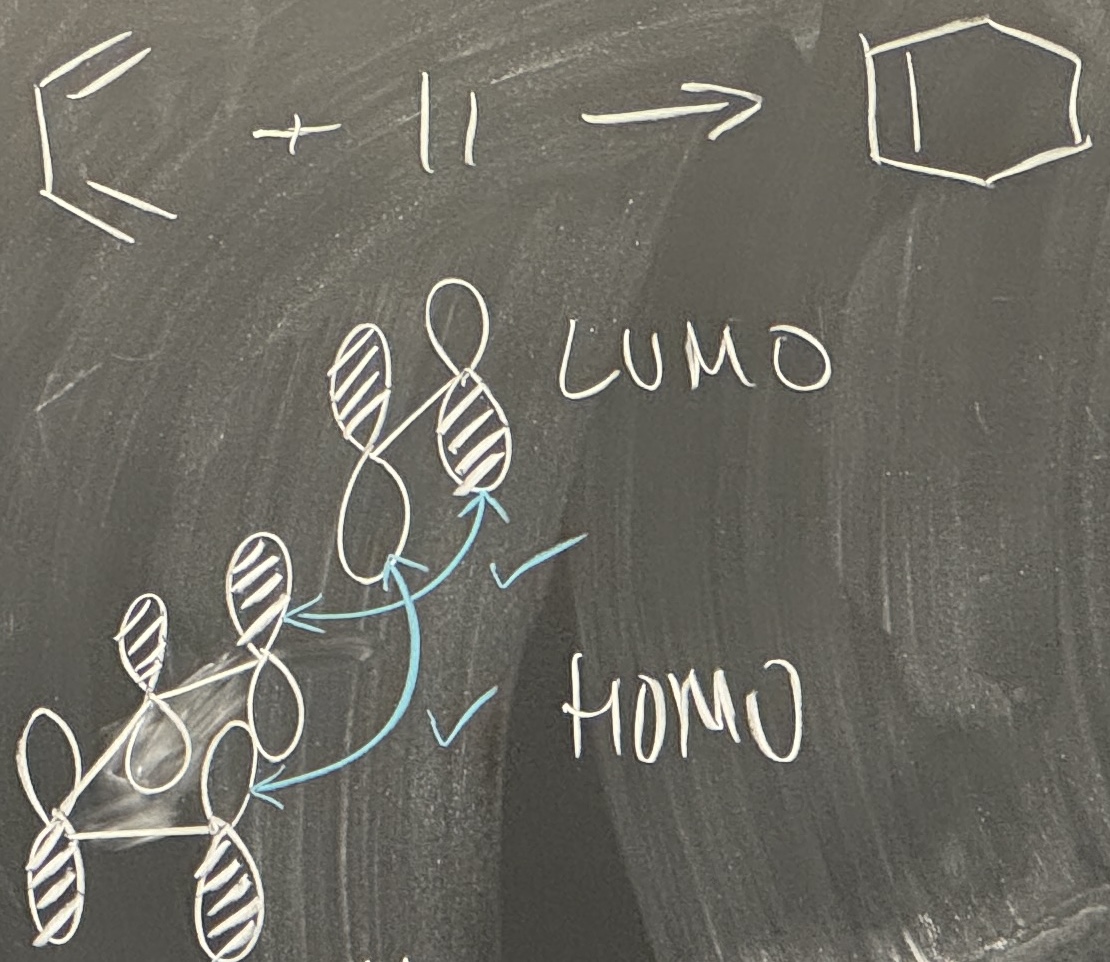 +
LUMO
HOMO